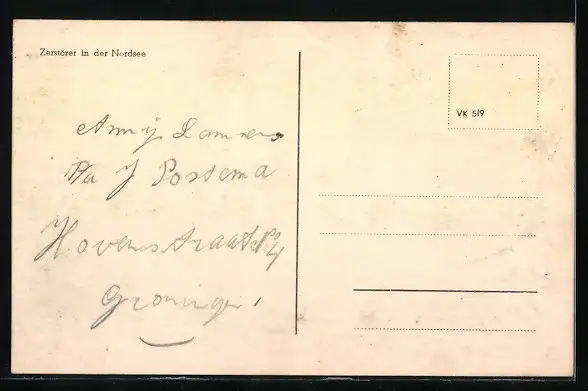 Zerstörer in der Nordsee
VK 519
Anny
P/a J Postema
Hovenstraat
Groningen